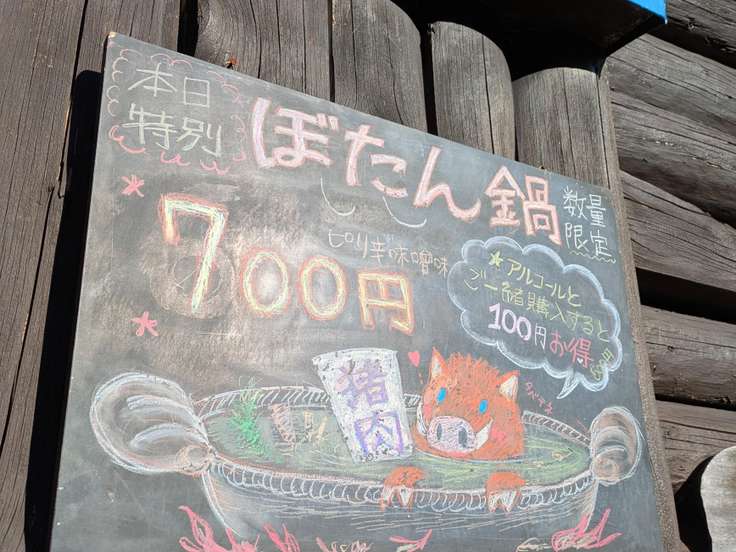 本日
特別
ぼたん鍋
数量
限定
ピリ辛味噌味
700円
アルコールと
ご一緒購入すると
100円お得
猪肉